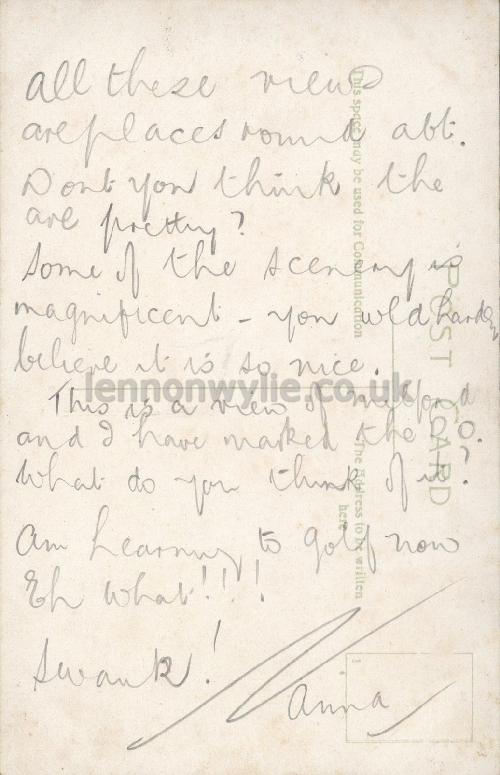 all these views
are places round abt.
Dont you think the
are pretty?
Some of the scenery is
magnificent - you wld hardly
believe it is so nice.
This is a view of Milford
and I have marked the P.O.
What do you think of it?
Am learning to golf now
Eh what!!!
Swank!
Anna
POST CARD
This space may be used for Communication
The Address to be written
here
lennonwylie.co.uk